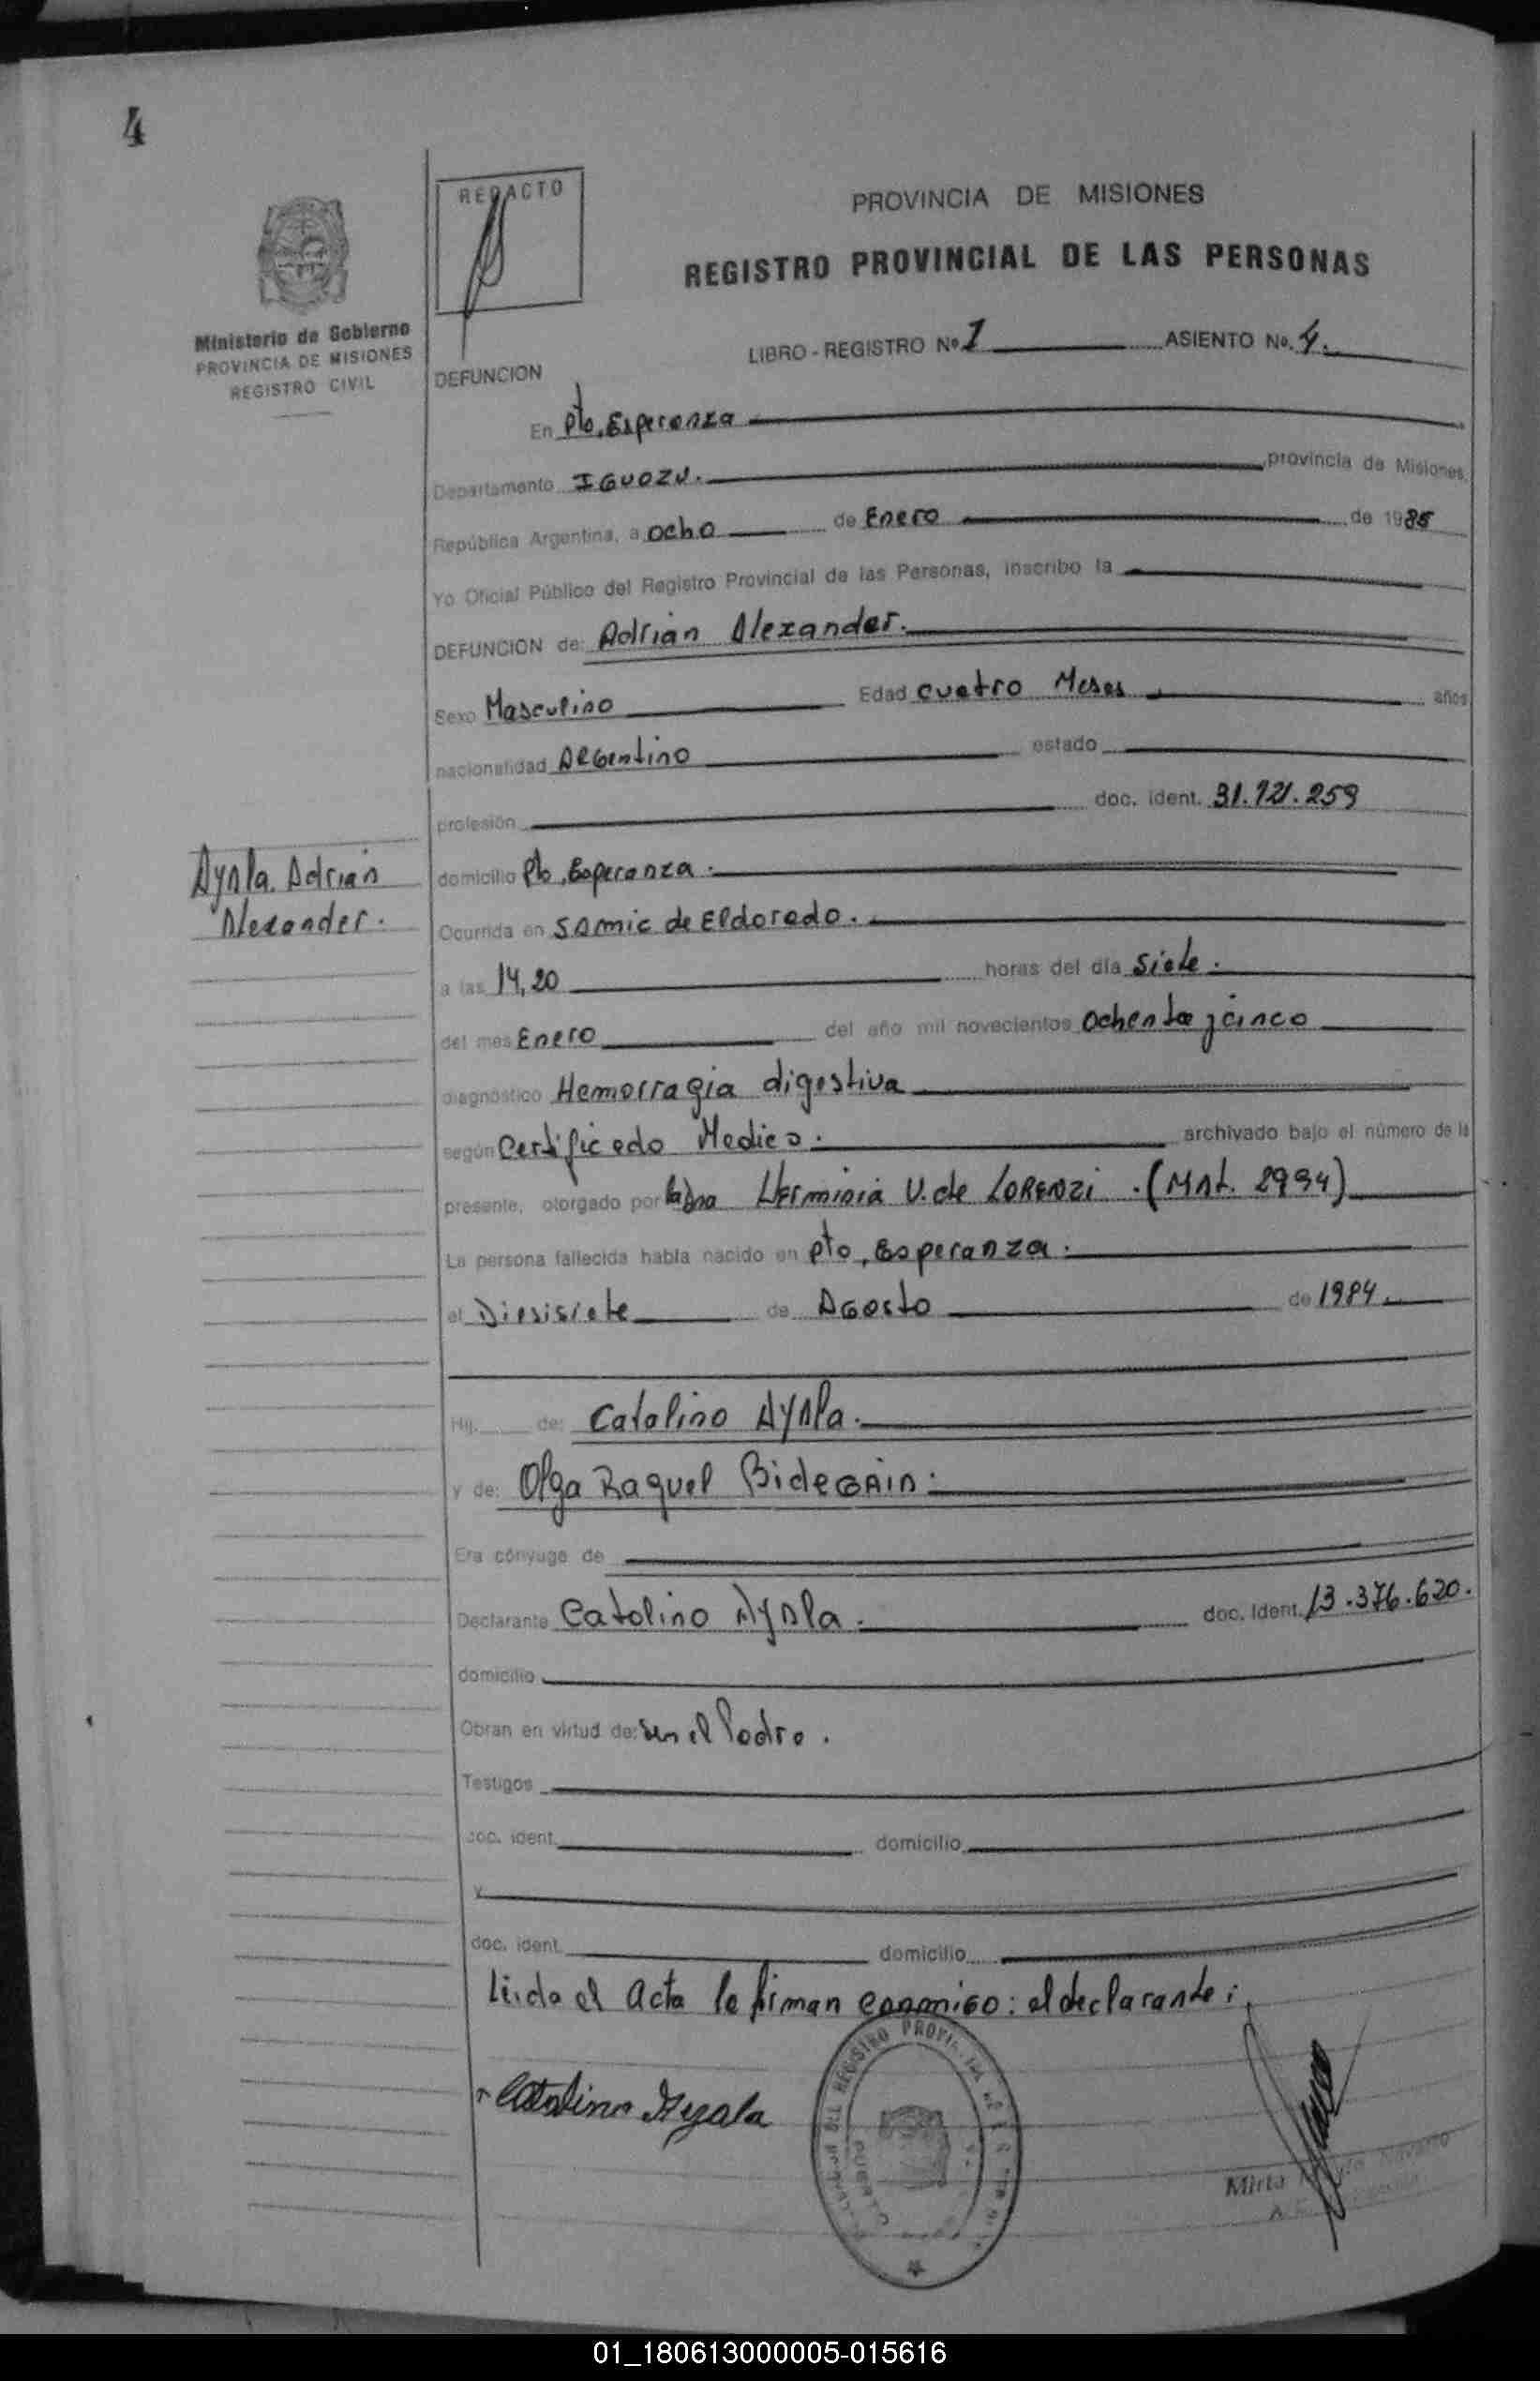 4
REDACTO
PROVINCIA DE MISIONES
REGISTRO PROVINCIAL DE LAS PERSONAS
Ministerio de Gobierno
PROVINCIA DE MISIONES
REGISTRO CIVIL
LIBRO - REGISTRO Nº 1 ASIENTO No. 4.
DEFUNCION
En Pto. Esperanza
Departamento IGUAZU. provincia de Misiones,
República Argentina, a ocho de Enero de 1985
Yo Oficial Público del Registro Provincial de las Personas, inscribo la
DEFUNCION de: Adrian Alexander.
Sexo Masculino Edad cuatro Meses años
nacionalidad Argentino estado
profesión doc. ident. 31.121.259
Ayala. Adrian
Alexander.
domicilio Pto. Esperanza.
Ocurrida en SAMIC de Eldorado.
a las 14,20 horas del día Siete.
del mes Enero del año mil novecientos ochenta y cinco
diagnóstico Hemorragia digestiva
según Certificado Medico. archivado bajo el número de la
presente, otorgado por la Dra Herminia V. de LORENZI. (Mat. 2994)
La persona fallecida había nacido en Pto. Esperanza.
el Diesisiete de Agosto de 1984.
Hij. de: Catalino Ayala.
y de: Olga Raquel Bidegain.
Era cónyuge de
Declarante Catalino Ayala. doc. Ident. 13.376.620.
domicilio
Obran en virtud de: Ser el Padre.
Testigos
doc. ident. domicilio
y
doc. ident. domicilio
Leida el Acta la firman conmigo: el declarante:
Catalino Ayala
REGISTRO
Mirta Navarro
01_180613000005-015616